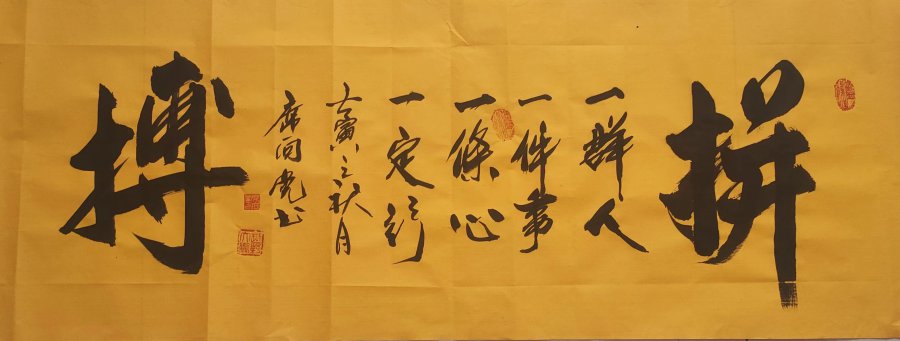 拼
一群人
一件事
一條心
一定行
壬寅之秋月
席
搏